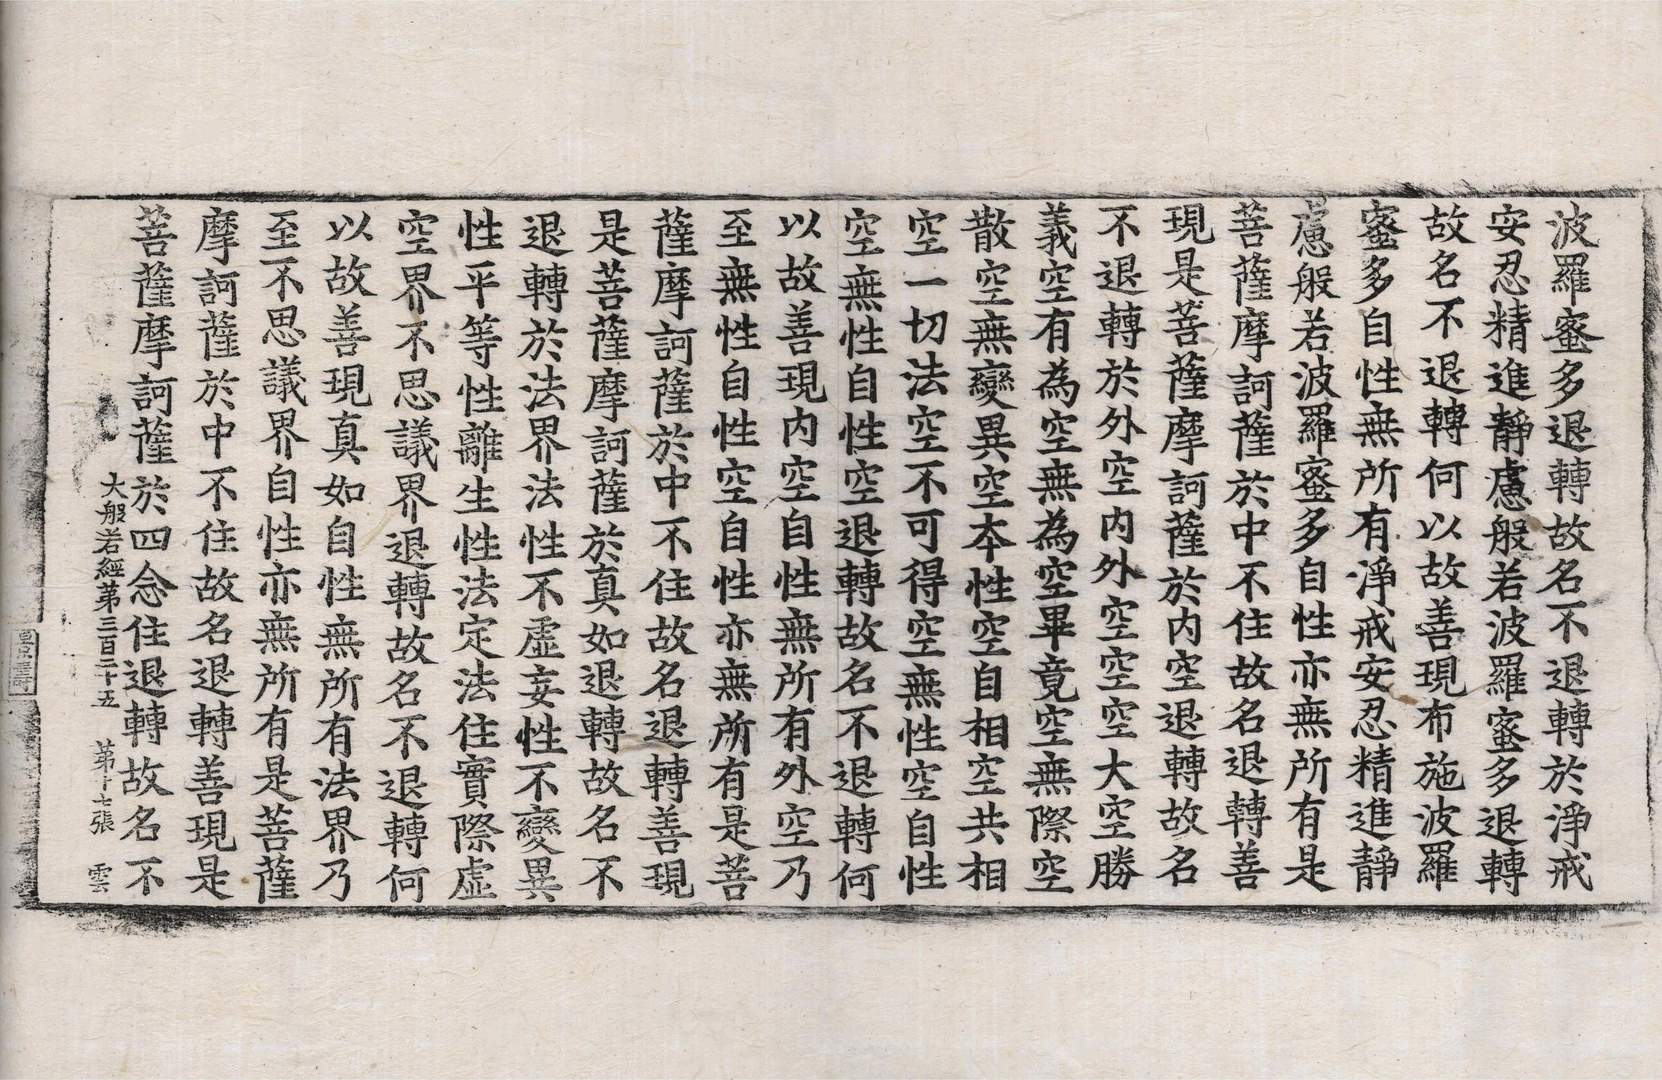 波羅蜜多退轉故名不退轉於淨戒
安忍精進靜慮般若波羅蜜多退轉
故名不退轉何以故善現布施波羅
蜜多自性無所有淨戒安忍精進靜
慮般若波羅蜜多自性亦無所有是
菩薩摩訶薩於中不住故名退轉善
現是菩薩摩訶薩於内空退轉故名
不退轉於外空内外空空空大空勝
義空有為空無為空畢竟空無際空
散空無變異空本性空自相空共相
空一切法空不可得空無性空自性
空無性自性空退轉故名不退轉何
以故善現内空自性無所有外空乃
至無性自性空自性亦無所有是菩
薩摩訶薩於中不住故名退轉善現
是菩薩摩訶薩於真如退轉故名不
退轉於法界法性不虛妄性不變異
性平等性離生性法定法住實際虛
空界不思議界退轉故名不退轉何
以故善現真如自性無所有法界乃
至不思議界自性亦無所有是菩薩
摩訶薩於中不住故名退轉善現是
菩薩摩訶薩於四念住退轉故名不
大般若經第三百二十五 第十七張 雲